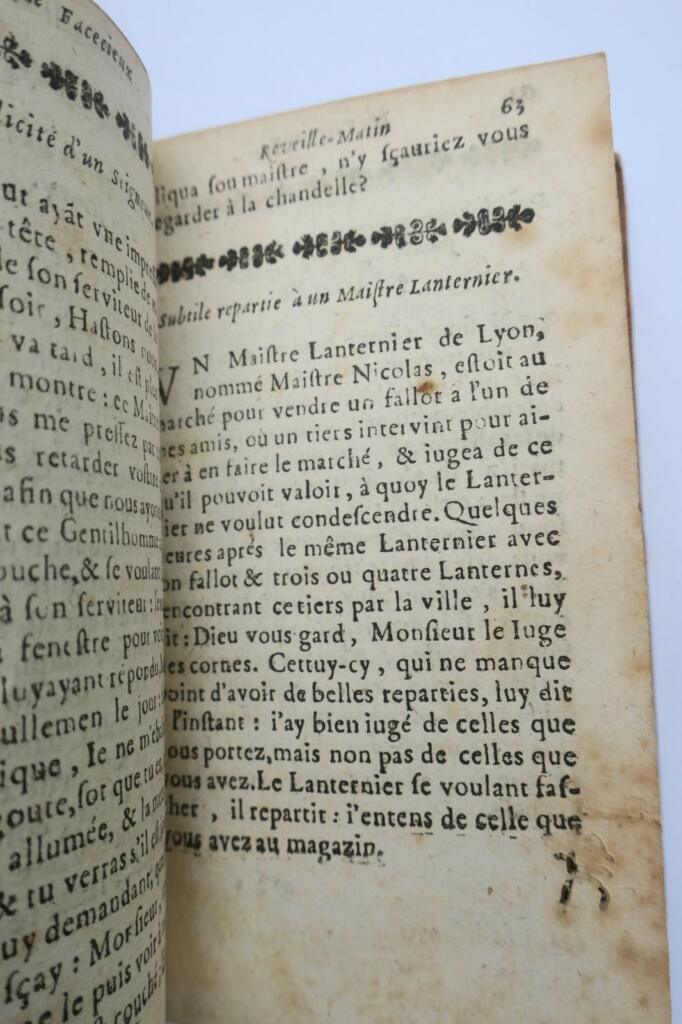 Facecieux
licité d'un Seigneur
ut ayāt vne
tête, remplie de
le son serviteur de
soir, Hastons
va tard, il est plus
montre: ce
s me pressez
s retarder vostre
afin que nous ayons
t ce Gentilhomme
ouche, & se voulant
à son serviteur:
fenestre pour
luy ayant répondu
ullemen le jour:
ique, Ie ne
oute, sot que tu es
allumée, & la
& tu verras s'il
uy demandant,
sçay: Monsieur,
ne le puis voir
couché
Reveille-Matin 63
liqua son maistre, n'y sçauriez vous
egarder à la chandelle?
Subtile repartie à un Maistre Lanternier.
VN Maistre Lanternier de Lyon,
nommé Maistre Nicolas, estoit au
arché pour vendre un fallot a l'un de
es amis, où un tiers intervint pour ai-
er à en faire le marché, & iugea de ce
u'il pouvoit valoir, à quoy le Lanter-
ier ne voulut condescendre. Quelques
eures aprés le même Lanternier avec
on fallot & trois ou quatre Lanternes,
encontrant ce tiers par la ville, il luy
it: Dieu vous gard, Monsieur le Iuge
es cornes. Cettuy-cy, qui ne manque
oint d'avoir de belles reparties, luy dit
l'instant: i'ay bien iugé de celles que
ous portez, mais non pas de celles que
vous avez. Le Lanternier se voulant fas-
her, il repartit: i'entens de celle que
vous avez au magazin.